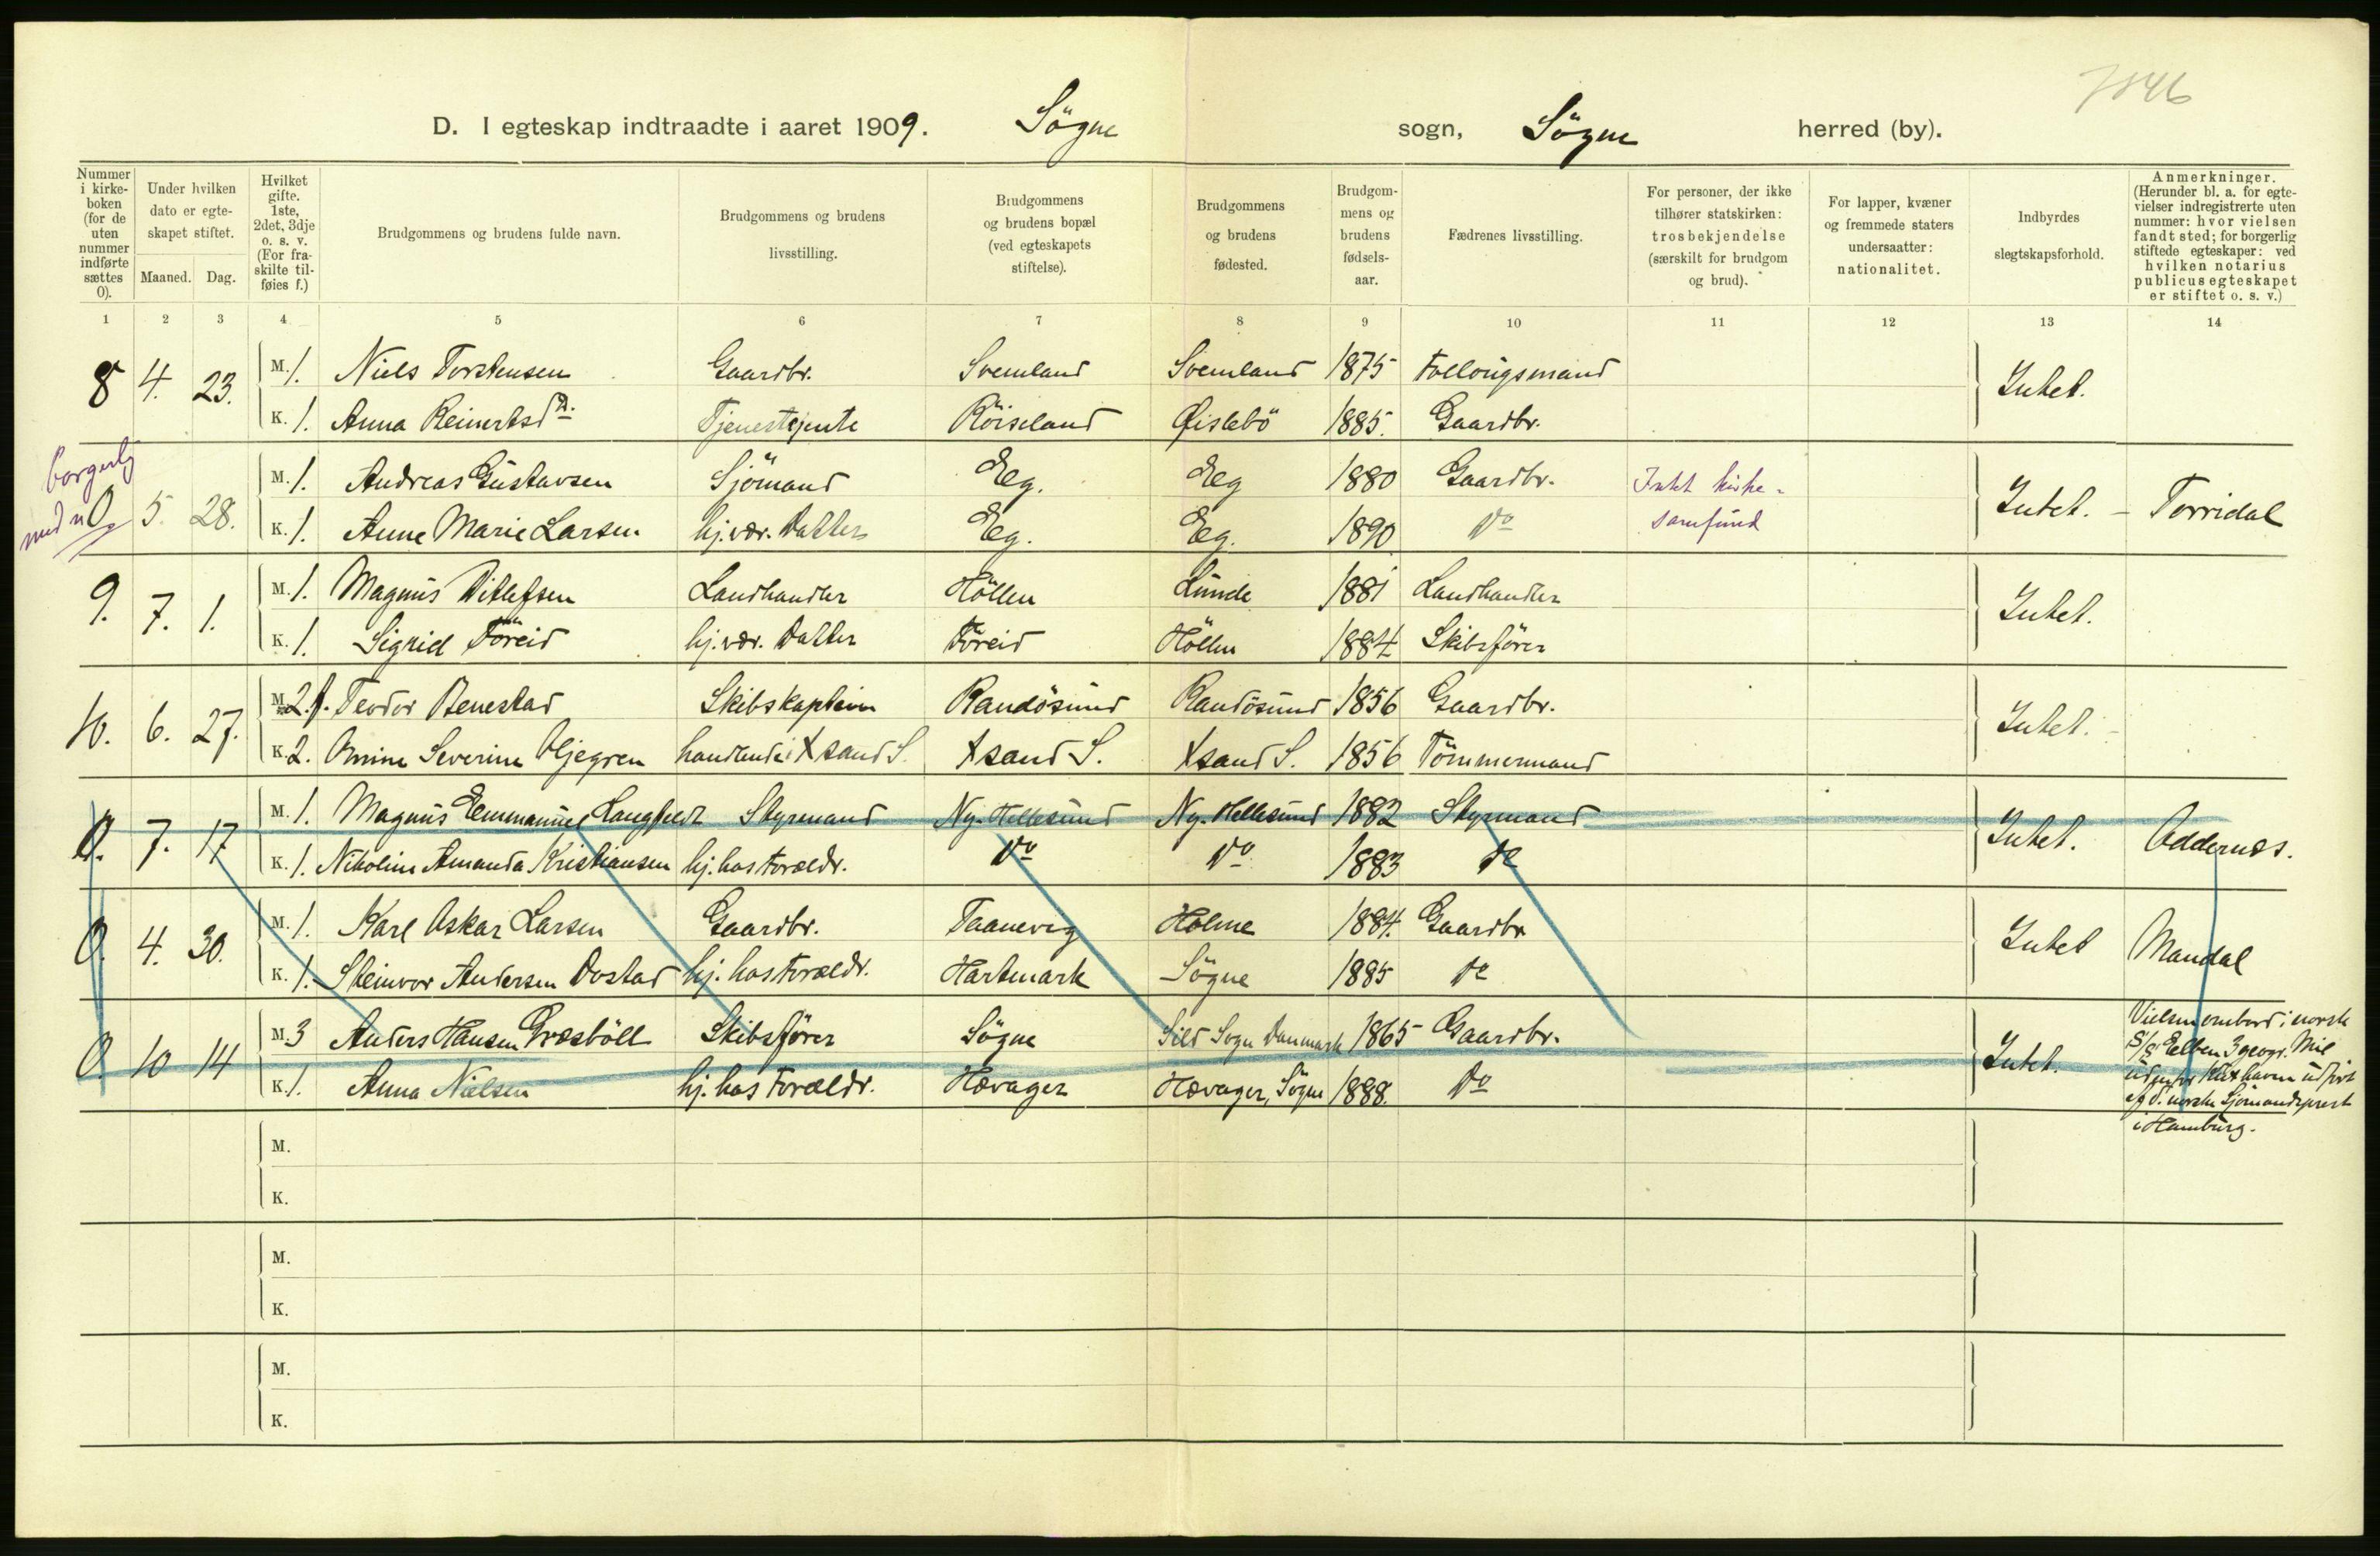 7846
D. I egteskap indtraadte i aaret 1909. Sögne sogn, Sögne herred (by).
Nummer i kirke-boken (for de uten nummer indførte sættes 0).
Under hvilken dato er egte-skapet stiftet.
Maaned. Dag.
Hvilket gifte. 1ste, 2det, 3dje o. s. v. (For fra-skilte til-føies f.)
Brudgommens og brudens fulde navn.
Brudgommens og brudens livsstilling.
Brudgommens og brudens bopæl (ved egteskapets stiftelse).
Brudgommens og brudens fødested.
Brudgom-mens og brudens fødsels-aar.
Fædrenes livsstilling.
For personer, der ikke tilhører statskirken: trosbekjendelse (særskilt for brudgom og brud).
For lapper, kvæner og fremmede staters undersaatter: nationalitet.
Indbyrdes slegtskapsforhold.
Anmerkninger. (Herunder bl. a. for egte-vielser indregistrerte uten nummer: hvor vielsen fandt sted; for borgerlig stiftede egteskaper: ved hvilken notarius publicus egteskapet er stiftet o. s. v.)
1 2 3 4 5 6 7 8 9 10 11 12 13 14
8 4. 23. M. 1. Niels Torstensen Gaardbr. Svemland Svemland 1875 Follougsmand Intet.
K. 1. Anna Reinertsdr. Tjenestejente Röiseland Øislebö 1885. Gaardbr.
borgerlig
0 5. 28. M. 1. Andreas Gustavsen Sjömand Eg. Eg 1880 Gaardbr. Intet kirke- Intet. - Torridal
K. 1. Anne Marie Larsen hj. vær. Datter Eg. Eg. 1890 Do samfund
9. 7. 1. M. 1. Magnus Ditlefsen Landhandler Höllen Lunde 1881 Landhandler Intet.
K. 1. Sigrid Töreid hj. vær. Datter Töreid Höllen 1884 Skibsförer
10. 6. 27. M. 2. f. Teodor Benestad Skibskaptein Randösund Randösund 1856 Gaardbr. Intet. -
K. 2. Omine Severine Oljegren handlende Xsand S. Xsand S. Xsand S. 1856 Tömmermand
0. 7. 17 M. 1. Magnus Emmanuel Langfeldt Styrmand Ny-Hellesund Ny-Hellesund 1882 Styrmand Intet. Oddernes.
K. 1. Nikoline Amanda Kristiansen hj. hos Foreldr. Do Do 1883 Do
0. 4. 30. M. 1. Karl Oskar Larsen Gaardbr. Taanevig Holme 1884. Gaardbr Intet Mandal
K. 1. Steinvor Andersen Dostad hj. hos Foreldr. Hartmark Sögne 1885 Do
0. 10 14 M. 3 Anders Hansen Græsböll Skibsförer Sögne Sild Sogn Danmark 1865 Gaardbr. Intet.
K. 1. Anna Nielsen hj. hos Foreldr. Hævager Hævager, Sögne 1888. Do
Vielsen ombord i norsk
S/S Elben 3 geogr. Mil
udenfor Kuxhaven udfört
af d. norske Sjömandsprest
i Hamburg.
M.
K.
M.
K.
M.
K.